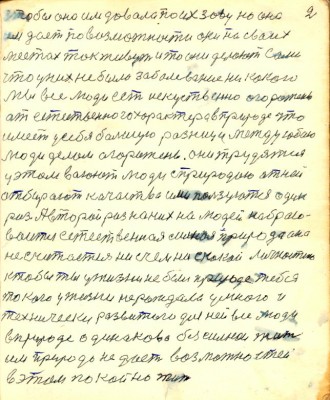 2
чтобы оно им довала по их зову но она
им дает по возможности они на своих
местах так живут и что они делают сами
что у них не было заболевание ни какого
Мы все люди сеть искуственно огорожены
от естественного характера в природе что
имеет у себя большую разницу между собою
люди делом огорожены. они трудятся
у этом воюют люди с природою от ней
отбирают качества и ползуются один
раз А второй раз на них на людей набрасо-
вается естественная сила природа она
не считается ни с чем ни с какой личностью
кто бы ты у жизни не был природе тебя
такого у жизни нерождала умного и
технически развитого для ней все люди
в природе одинаково без силном
им природо не дает возможностей
в этом покойно жит